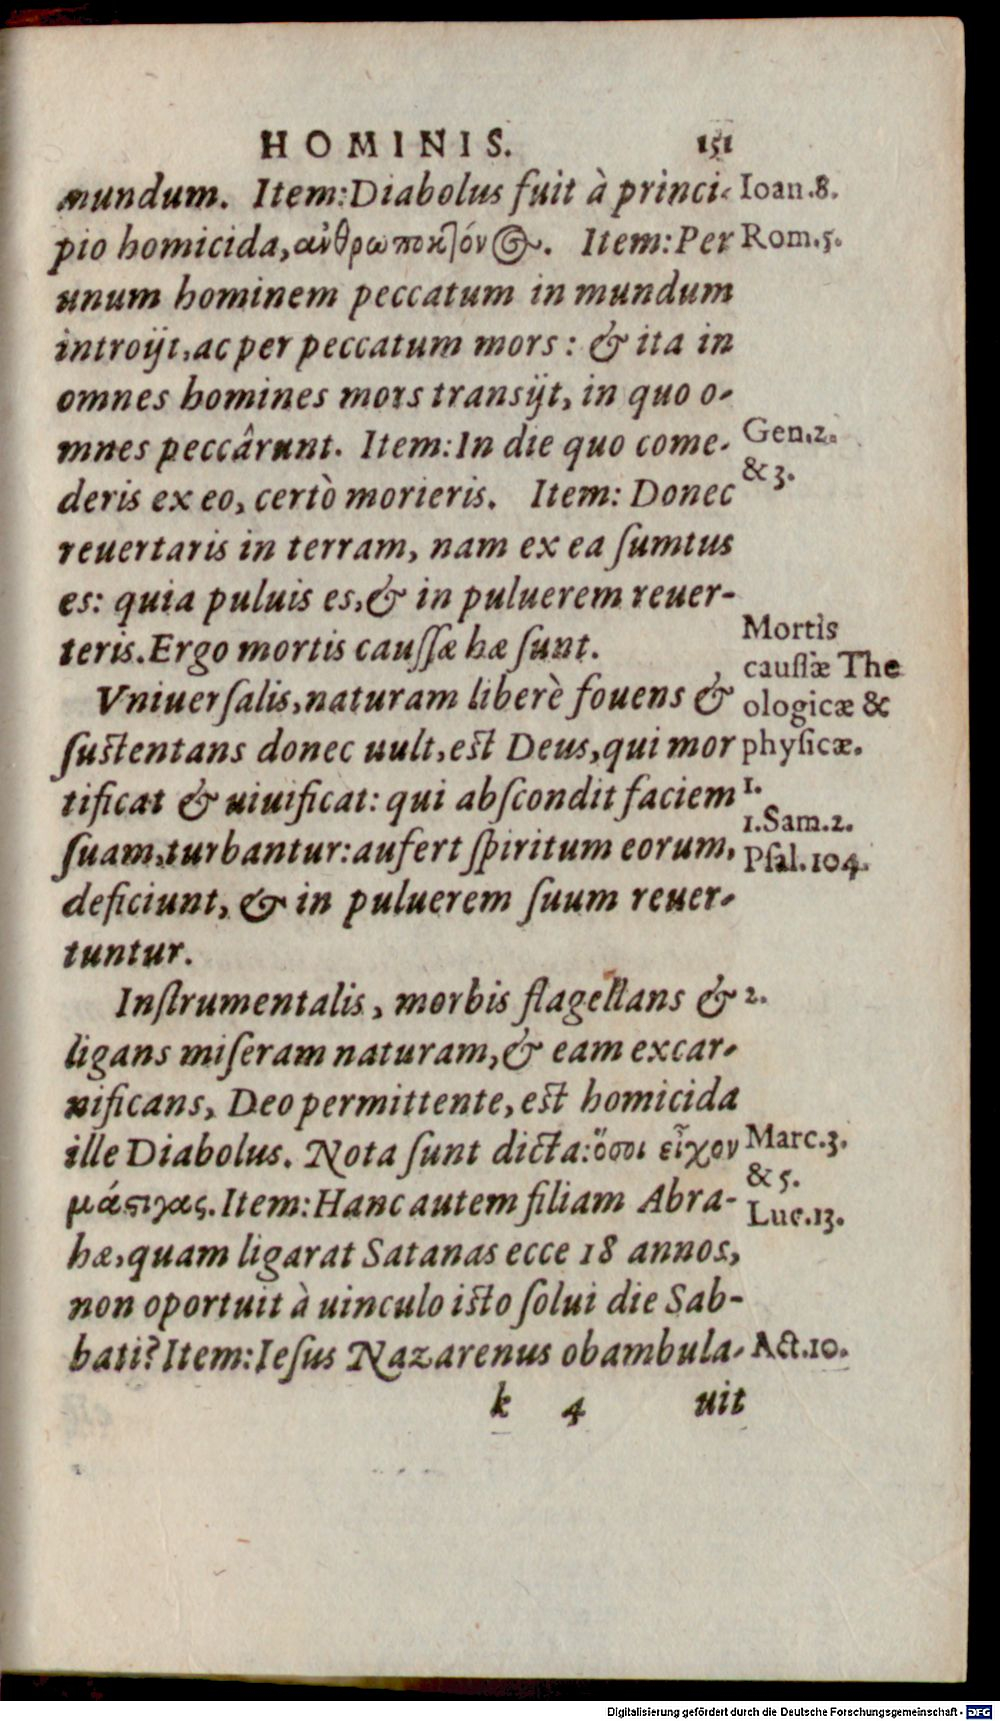 HOMINIS. 151
mundum. Item: Diabolus fuit à princi- Ioan.8.
pio homicida, ανθρωποκτόνος. Item: Per Rom.5.
unum hominem peccatum in mundum
introijt, ac per peccatum mors: & ita in
omnes homines mors transijt, in quo o-
mnes peccârunt. Item: In die quo come- Gen.2.
deris ex eo, certò morieris. Item: Donec & 3.
reuertaris in terram, nam ex ea ſumtus
es: quia puluis es, & in puluerem reuer-
teris. Ergo mortis cauſſæ hæ ſunt. Mortis
cauſſæ The
Vniuerſalis, naturam liberè fouens & ologicæ &
ſustentans donec uult, est Deus, qui mor phyſicæ.
tificat & uiuificat: qui abſcondit faciem 1.
1.Sam.2.
ſuam, turbantur: aufert ſpiritum eorum, Pſal.104.
deficiunt, & in puluerem ſuum reuer-
tuntur.
Inſtrumentalis, morbis flagellans & 2.
ligans miſeram naturam, & eam excar-
nificans, Deo permittente, est homicida
ille Diabolus. Nota ſunt dicta: ὅσοι εἶχον Marc.3.
& 5.
μάστιγας. Item: Hanc autem filiam Abra- Luc.13.
hæ, quam ligarat Satanas ecce 18 annos,
non oportuit à uinculo isto ſolui die Sab-
bati? Item: Ieſus Nazarenus obambula- Act.10.
k 4 uit
Digitalisierung gefördert durch die Deutsche Forschungsgemeinschaft - DFG